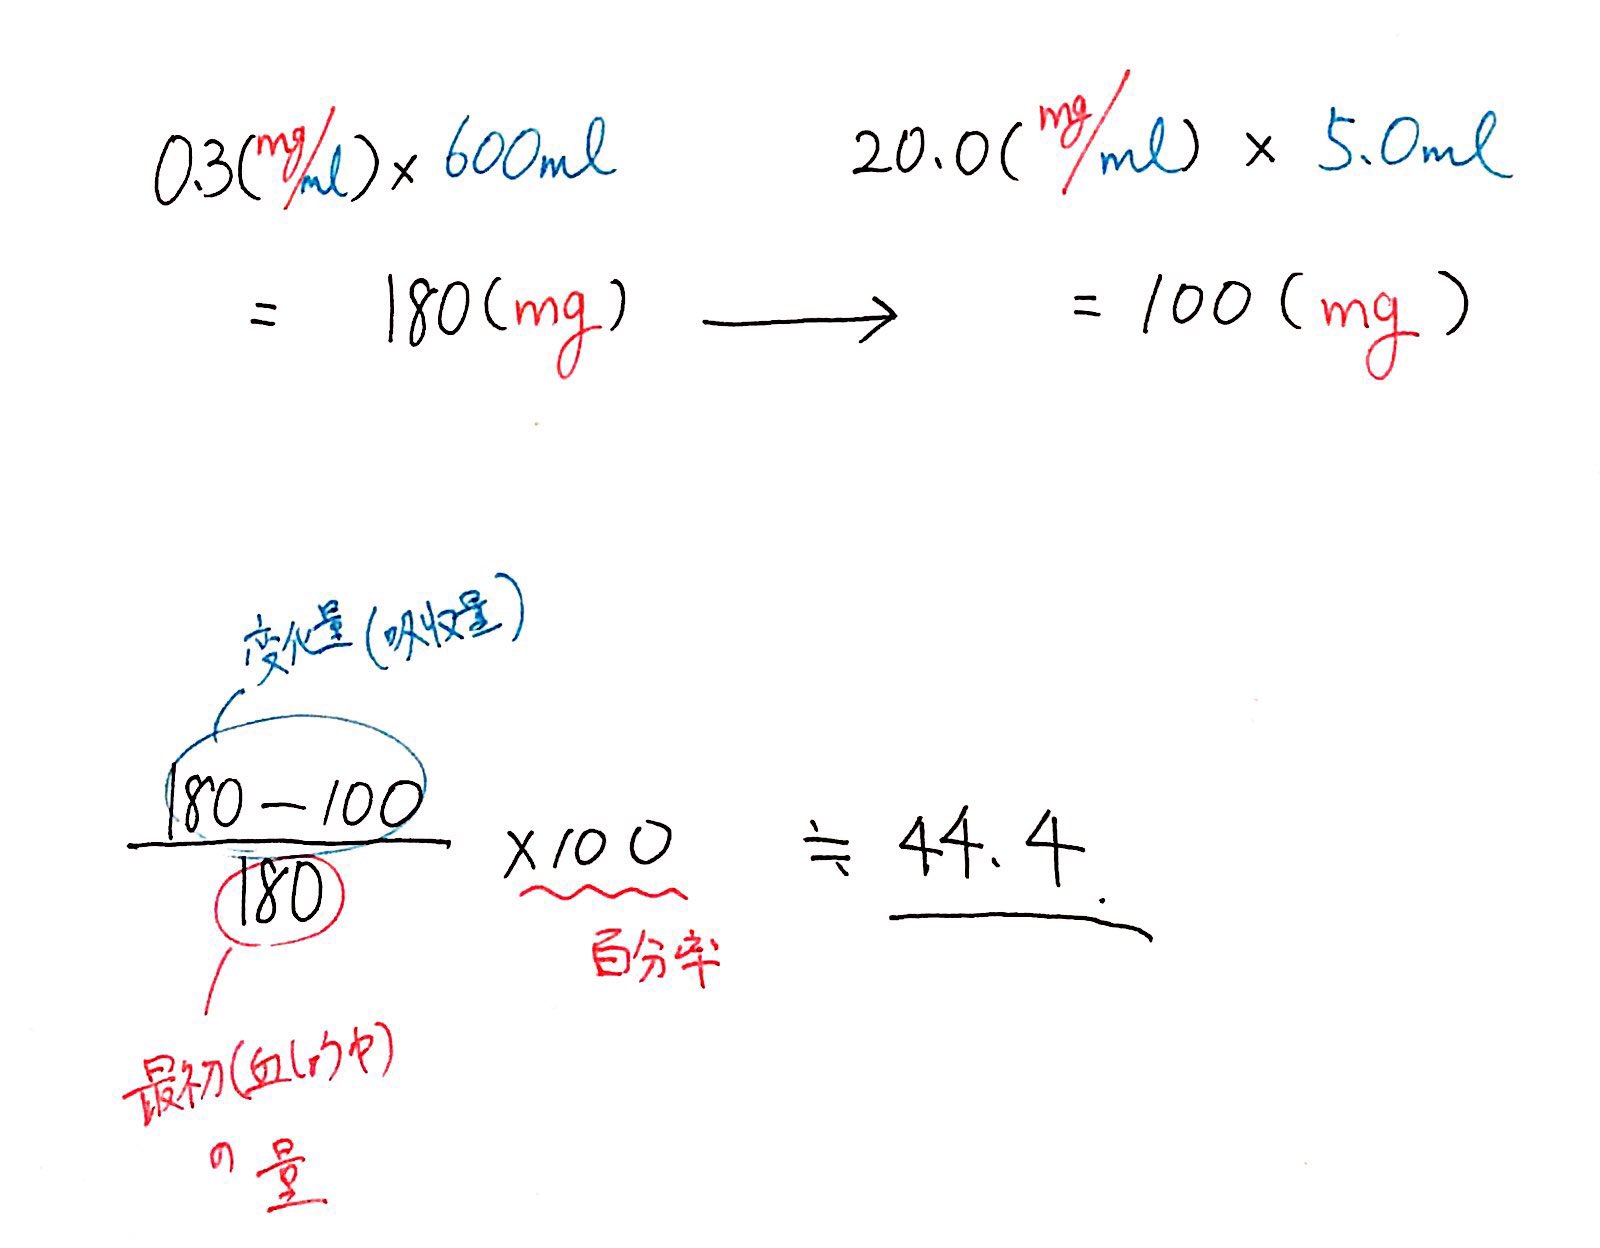 0.3(mg/ml)× 600ml
20.0(mg/ml) × 5.0ml
= 180(mg) → = 100(mg)
変化量(吸収量)
180-100
180
×100 ≒ 44.4
百分率
最初(血しょう中)
の量